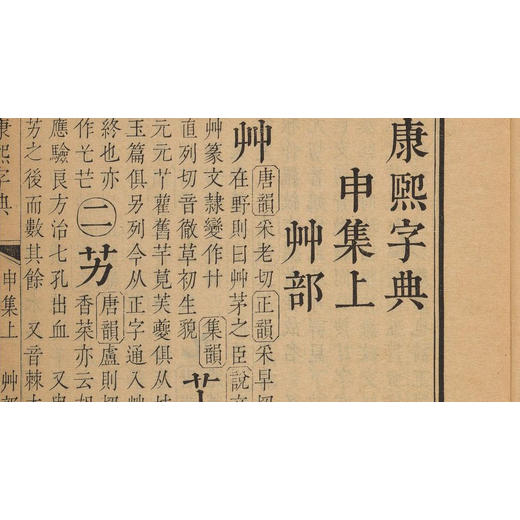 康熙字典
申集上
艸部
艸
唐韻采老切正韻采早
在野則曰艸茅之臣說
艸篆文隸變作 集韻
直列切音徹草初生貌
元元 雚舊芉萈芺夔俱从
玉篇俱另列今从正字通入
終也亦
作
㊁
艻
唐韻盧則
香菜亦云
應驗良方治七孔出血 又
之後而數其餘 又音棘
康熙字典 申集上 艸部